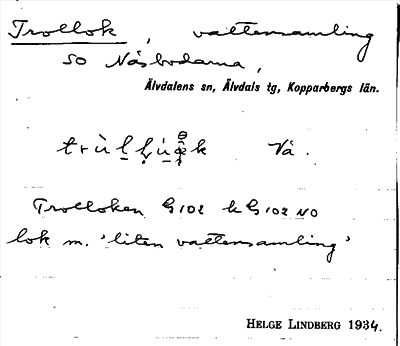 Trollok, vattensamling
SO Näsbodarna,
Älvdalens sn, Älvdals tg, Kopparbergs län.
Vå.
Trolloken G102 k G102 NO
lok m. 'liten vattensamling'
HELGE LINDBERG 1934.